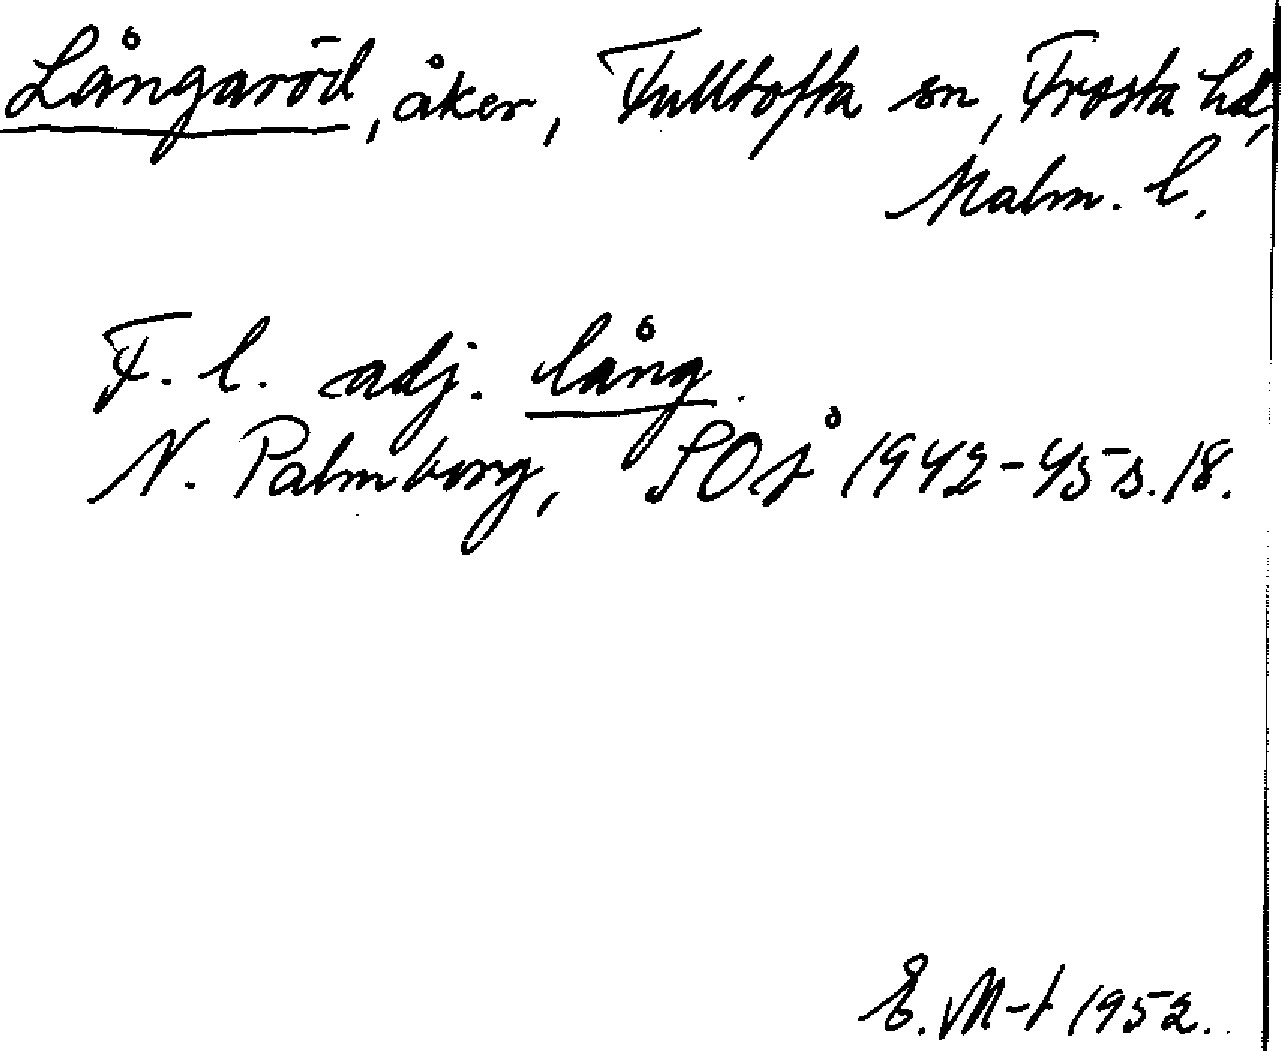 Långaröd, åker, Fulltofta sn, Frosta hd,
Malm. l.
F. l. adj. lång.
N. Palmborg, SOÅ 1942-45 s. 18.
E. M-t 1952.